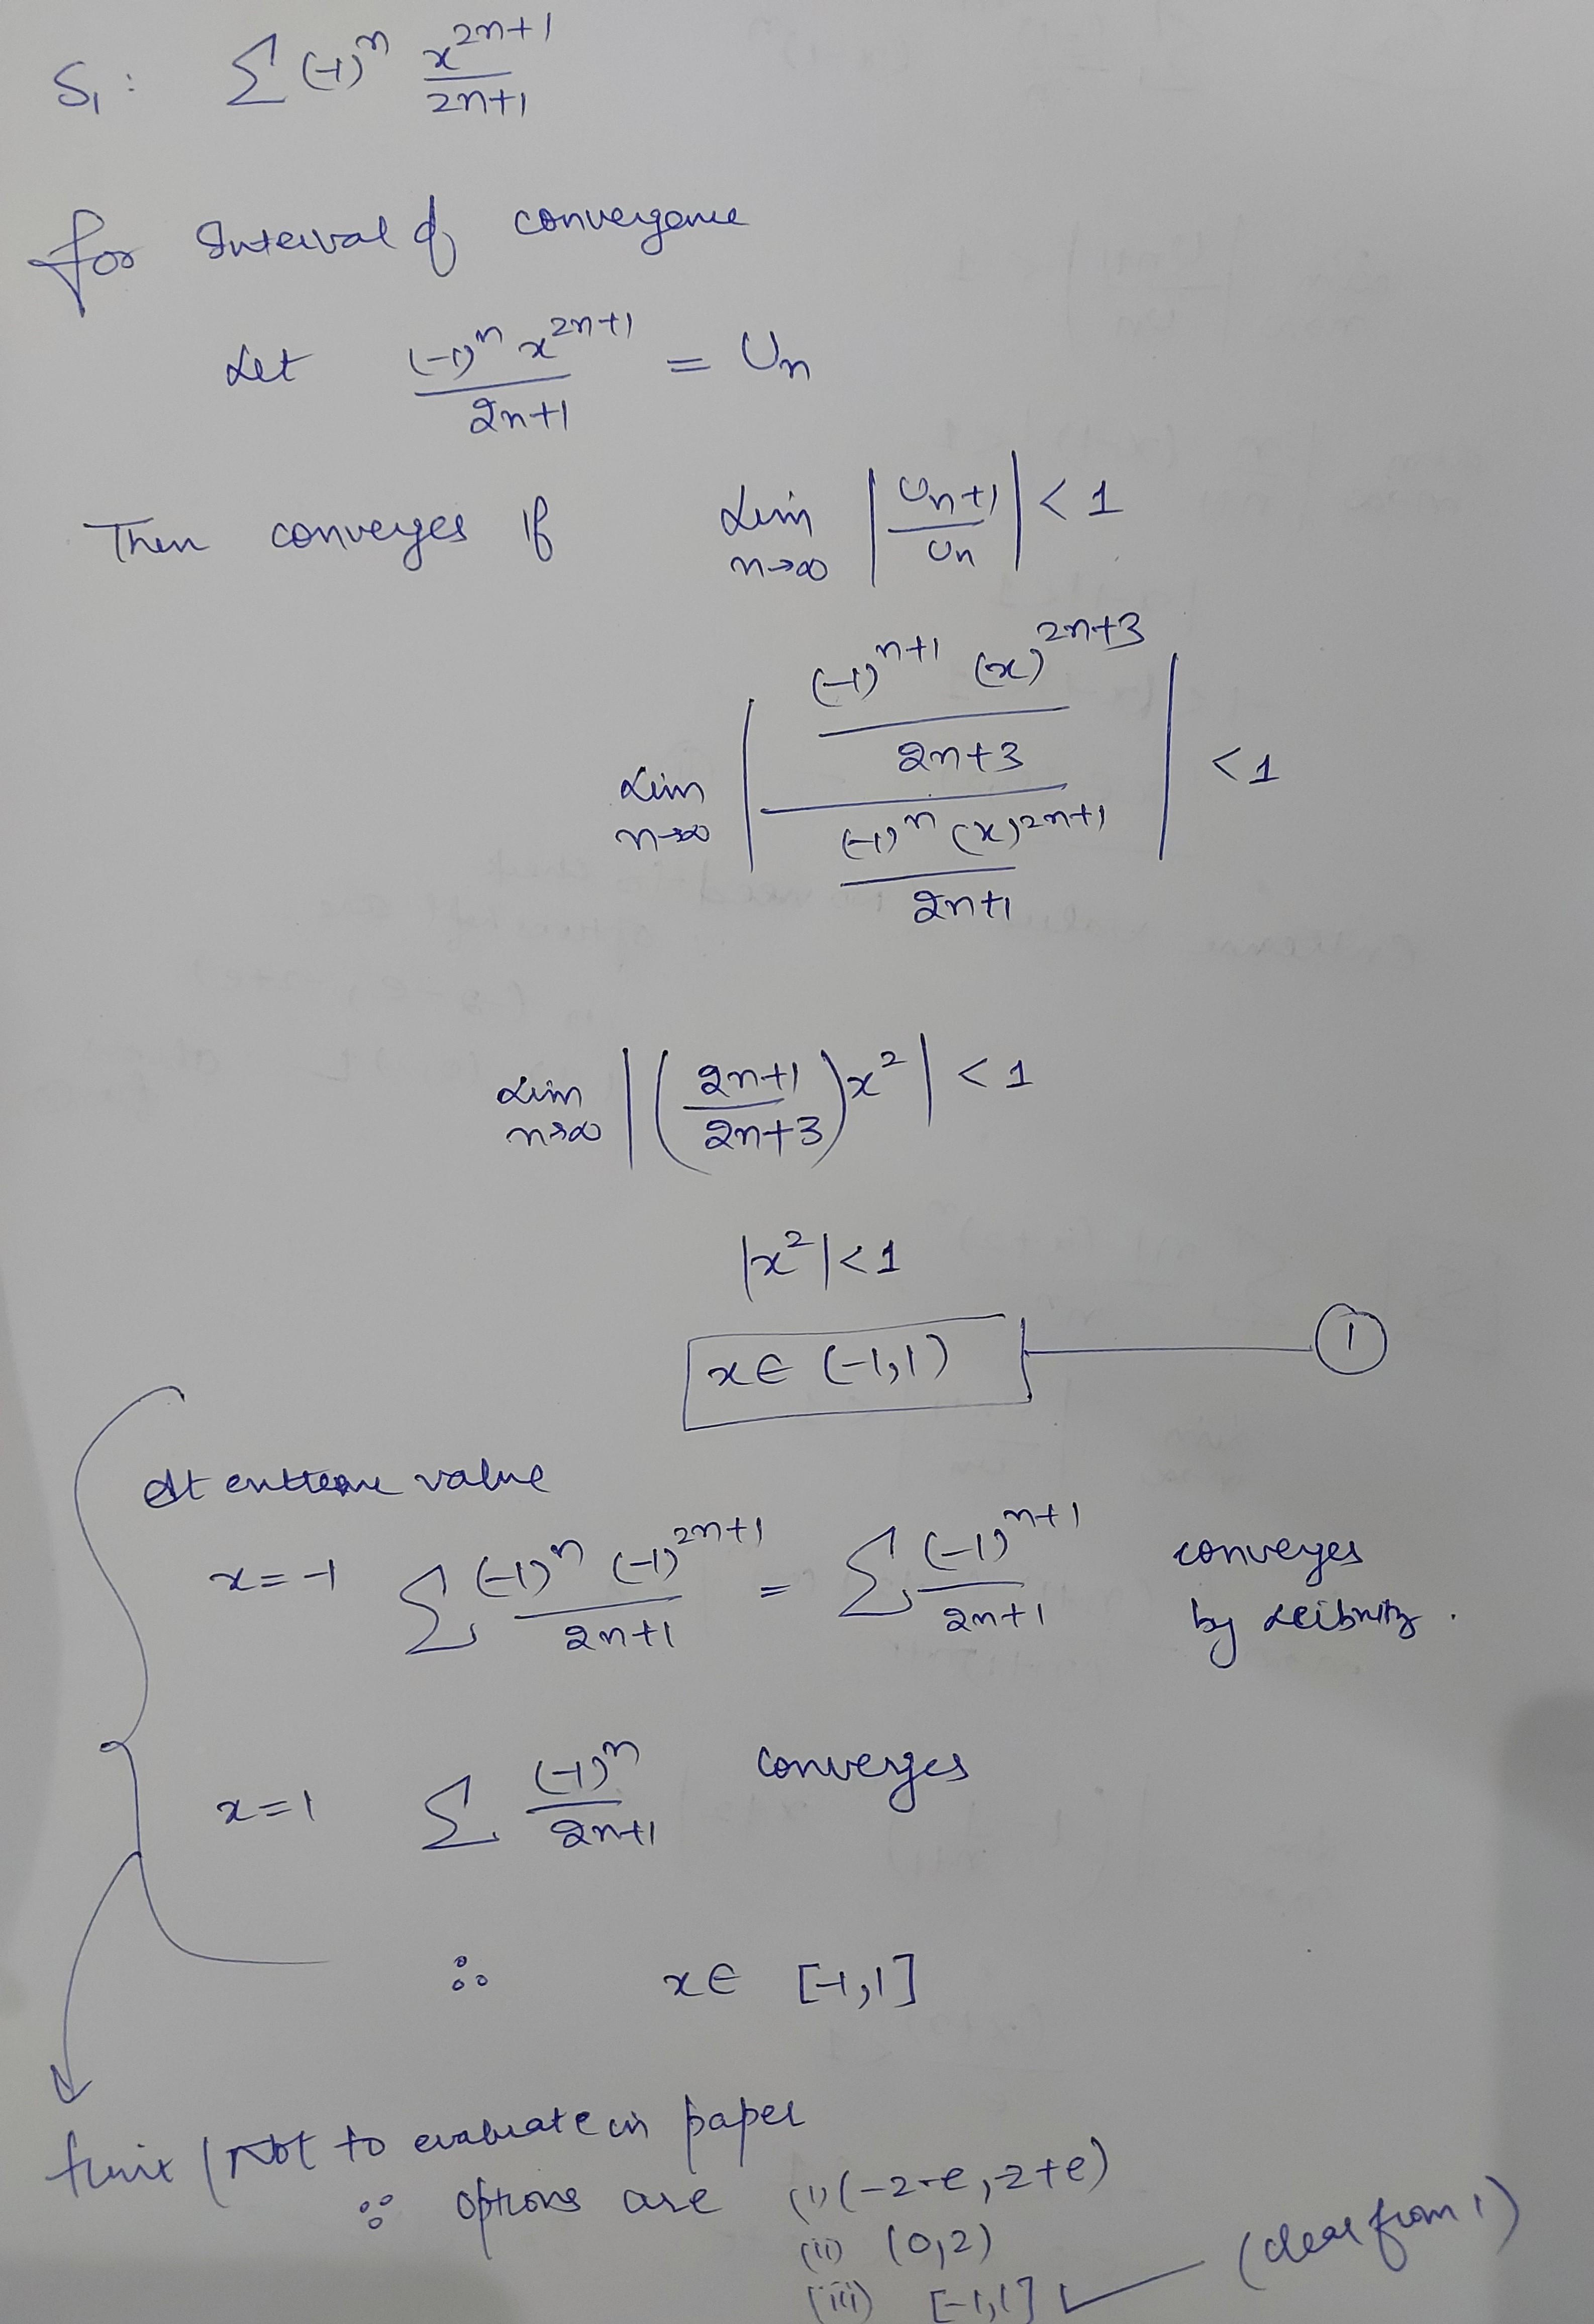 S₁: ∑ (-1)ⁿ x^{2n+1} / 2n+1
for Interval of convergence
Let (-1)ⁿ x^{2n+1} / 2n+1 = Uₙ
Then converges if Lim n→∞ | Uₙ₊₁ / Uₙ | < 1
Lim n→∞ | ((-1)^{n+1} (x)^{2n+3} / 2n+3) / ((-1)ⁿ (x)^{2n+1} / 2n+1) | < 1
Lim n→∞ | (2n+1 / 2n+3) x² | < 1
|x²| < 1
x ∈ (-1,1) ①
At extreme value
x = -1 ∑ (-1)ⁿ (-1)^{2n+1} / 2n+1 = ∑ (-1)^{n+1} / 2n+1 converges by Leibnitz.
x = 1 ∑ (-1)ⁿ / 2n+1 converges
∴ x ∈ [-1,1]
(Not to evaluate in paper
∵ options are (i) (-2-e, -2+e)
(ii) (0,2)
(iii) [-1,1] ✓ (clear from 1)